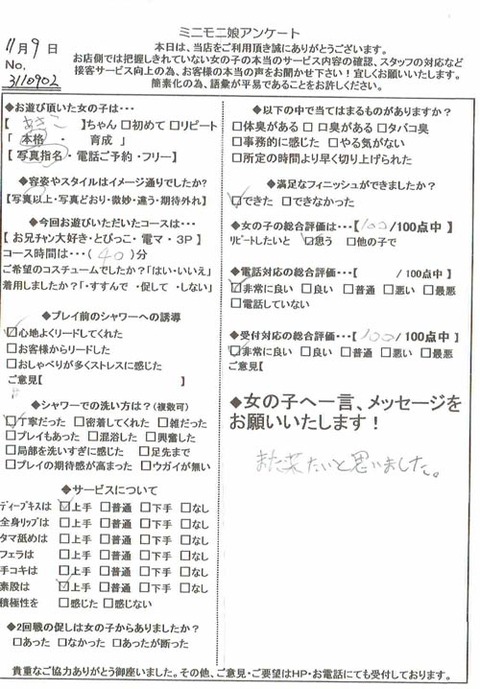 ミニモニ娘アンケート
11月9日
No.
3110902
本日は、当店をご利用頂き誠にありがとうございます。
お店側では把握しきれていない女の子の本当のサービス内容の確認、スタッフの対応など
接客サービス向上の為、お客様の本当の声をお聞かせ下さい！宜しくお願いいたします。
簡素化の為、語彙が平易であることをお許しください。
◆お遊び頂いた女の子は・・・
【 】ちゃん □初めて □リピート
「 本格 ・ 育成 」
【 写真指名・電話ご予約・フリー】
◆容姿やスタイルはイメージ通りでしたか?
【写真以上・写真どおり・微妙・違う・期待外れ】
◆今回お遊びいただいたコースは・・・
【 お兄チャン大好き・とびっこ・電マ・3P 】
コース時間は・・・( 40 )分
ご希望のコスチュームでしたか?「はい・いいえ」
着用しましたか?「・すすんで ・促して ・しない」
◆プレイ前のシャワーへの誘導
☑心地よくリードしてくれた
□お客様からリードした
□おしゃべりが多くストレスに感じた
ご意見【 】
◆シャワーでの洗い方は？(複数可)
☑丁寧だった □密着してくれた □雑だった
□プレイもあった □混浴した □興奮した
□局部を洗いすぎに感じた □足先まで
□プレイの期待感が高まった □ウガイが無い
◆サービスについて
ディープキスは ☑上手 □普通 □下手 □なし
全身リップは □上手 □普通 □下手 □なし
タマ舐めは □上手 □普通 □下手 □なし
フェラは □上手 □普通 □下手 □なし
手コキは □上手 □普通 □下手 □なし
素股は ☑上手 □普通 □下手 □なし
積極性を □感じた □感じない
◆2回戦の促しは女の子からありましたか？
□あった □なかった □あったが断った
◆以下の中で当てはまるものがありますか？
□体臭がある □口臭がある □タバコ臭
□事務的に感じた □やる気がない
□所定の時間より早く切り上げられた
◆満足なフィニッシュができましたか？
☑できた □できなかった
◆女の子の総合評価は・・・【 100 /100点中 】
リピートしたいと ☑思う □他の子で
◆電話対応の総合評価・・・【 /100点中 】
☑非常に良い □良い □普通 □悪い □最悪
□電話していない
◆受付対応の総合評価・・・【 100 /100点中 】
☑非常に良い □良い □普通 □悪い □最悪
ご意見【
◆女の子へ一言、メッセージを
お願いいたします！
また来たいと思いました。
貴重なご協力ありがとう御座いました。その他、ご意見・ご要望はHP・お電話にても受付しております。